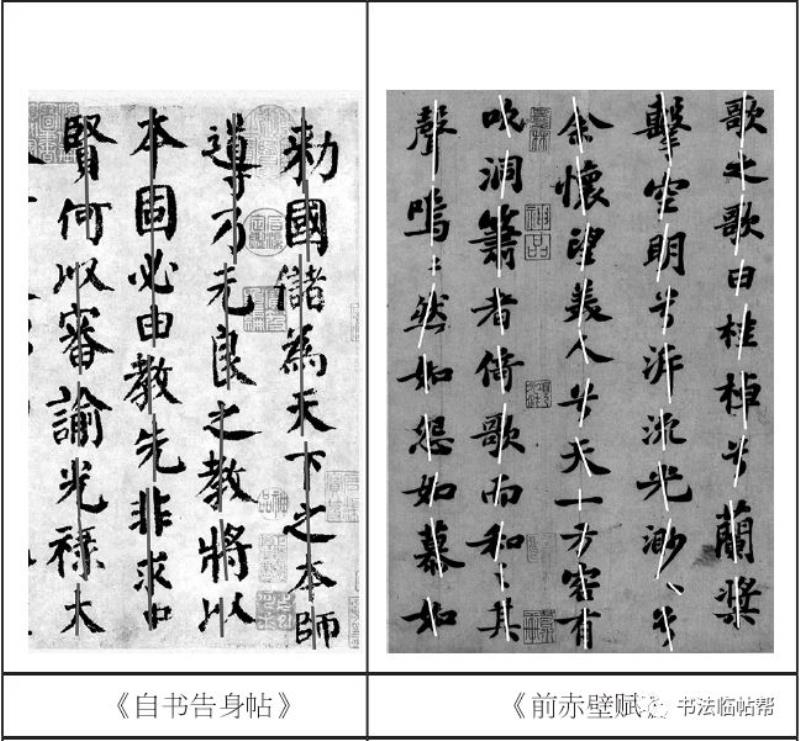 勅國儲為天下之本師
導乃元良之教將以
本固必由教先非求中
賢何以審諭光祿大
歌之歌曰桂棹兮蘭槳
擊空明兮泝流光渺〻兮
余懷望美人兮天一方客有
吹洞簫者倚歌而和之其
聲嗚〻然如怨如慕如
《自书告身帖》
《前赤壁赋》
书法临帖帮